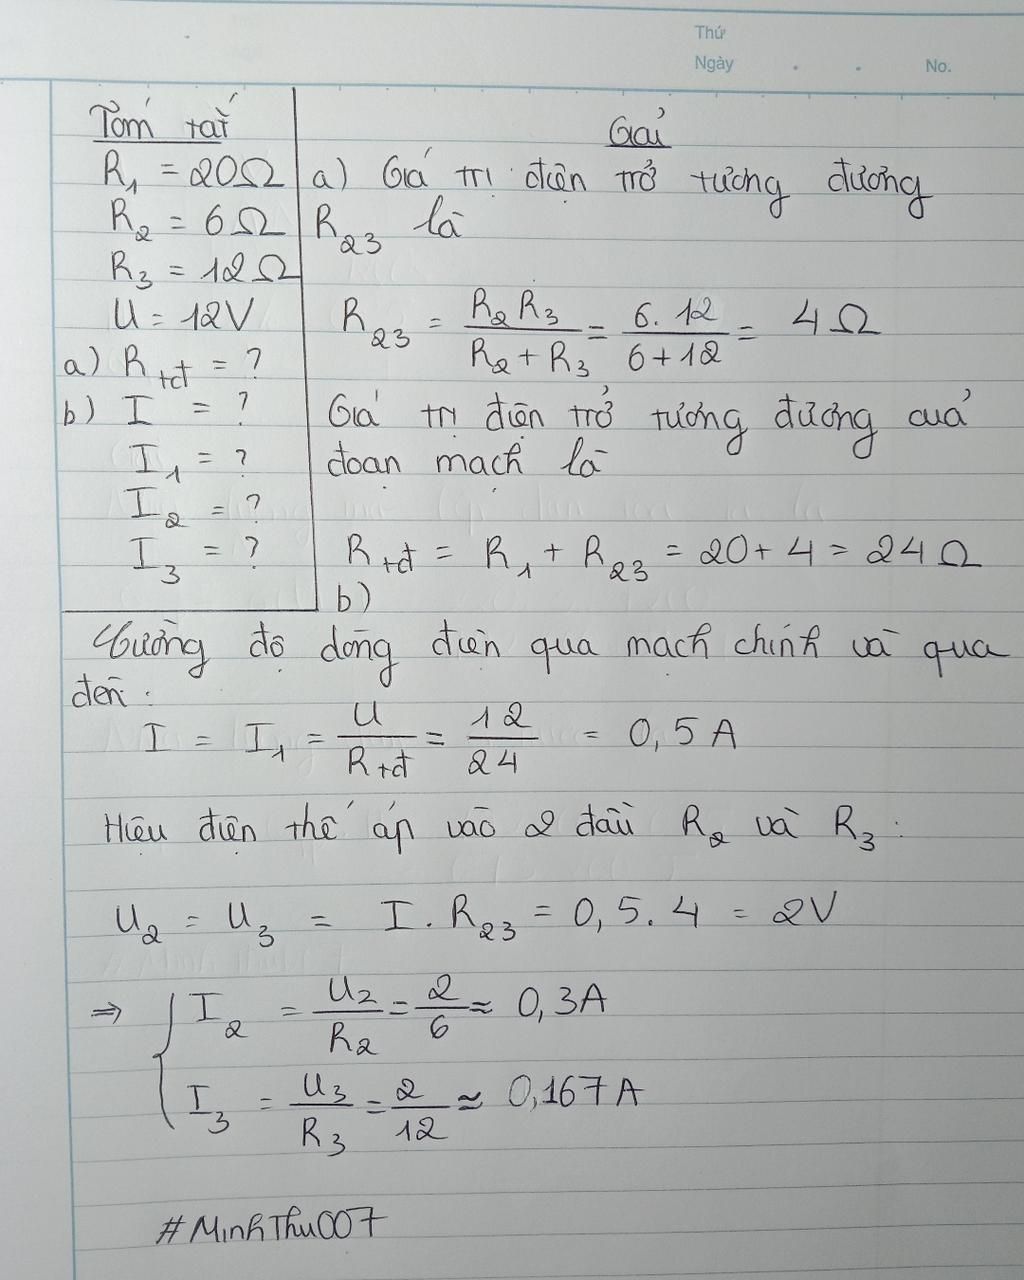 Thứ
Ngày . . No.
Tóm tắt
R1 = 20Ω
R2 = 6Ω
R3 = 12Ω
U = 12V
a) Rtđ = ?
b) I = ?
I1 = ?
I2 = ?
I3 = ?
Giải
a) Giá trị điện trở tương đương
R23 là
R23 = R2 R3 / R2 + R3 = 6. 12 / 6 + 12 = 4Ω
Giá trị điện trở tương đương của
đoạn mạch là
Rtđ = R1 + R23 = 20 + 4 = 24Ω
b)
Cường độ dòng điện qua mạch chính và qua
đèn :
I = I1 = U / Rtđ = 12 / 24 = 0,5 A
Hiệu điện thế áp vào 2 đầu R2 và R3 :
U2 = U3 = I . R23 = 0,5. 4 = 2V
⇒ { I2 = U2 / R2 = 2 / 6 ≈ 0,3A
I3 = U3 / R3 = 2 / 12 ≈ 0,167A
#MinhThu007